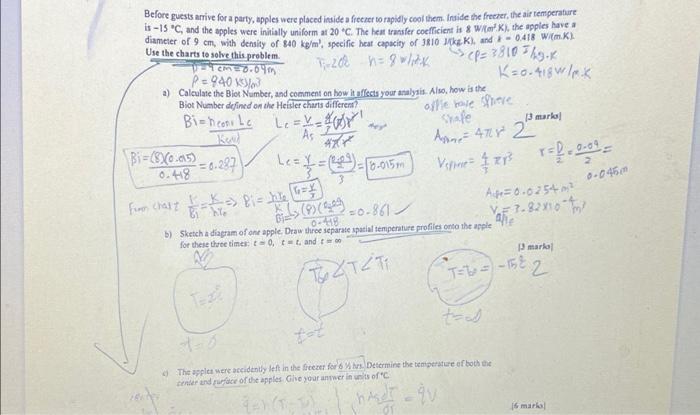 Before guests arrive for a party, apples were placed inside a freezer to rapidly cool them. Inside the freezer, the air temperature
is −15 °C, and the apples were initially uniform at 20 °C. The heat transfer coefficient is 8 W/(m².K), the apples have a
diameter of 9 cm, with density of 840 kg/m³, specific heat capacity of 3810 J/(kg.K), and k = 0.418 W/(m.K).
Use the charts to solve this problem.
CP=3810 J/kg.K
D=9cm=0.09m
K=0.418W/m.K
ρ=840 kg/m³
a) Calculate the Biot Number, and comment on how it affects your analysis. Also, how is the
Biot Number defined on the Heisler charts different?
apple have sphere
shape
[3 marks]
2
Bi=hconv Lc
Lc=V/As
Asphere=4πr²
Bi=(8)(0.015)/0.418=0.287
Lc=r/3=(0.09/2)/3=0.015m
Vsphere=4/3 πr³
r=D/2=0.09/2=
0.045m
As=0.0254m²
V=3.82x10⁻⁴m³
From chart 1/Bi=K/hr₀=> Bi=hr₀/K
=0.861
b) Sketch a diagram of one apple. Draw three separate spatial temperature profiles onto the apple
for these three times: t = 0, t = t, and t = ∞
[3 marks]
2
T∞<T<Ti
T=T∞=-15°C
t=0
t=t
t=∞
c) The apples were accidently left in the freezer for 6 ½ hrs. Determine the temperature of both the
center and surface of the apples. Give your answer in units of °C
[6 marks]